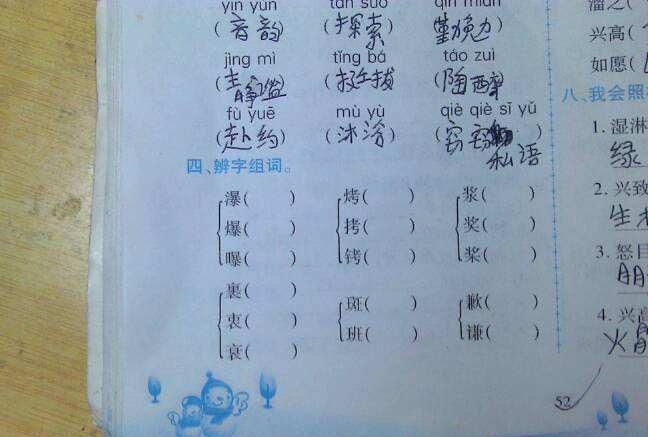 yīn yùn tàn suǒ qín miǎn 溜之(
(音韵) (探索) (勤勉) 兴高(
jìng mì tǐng bá táo zuì
(静谧) (挺拔) (陶醉) 如愿(
fù yuē mù yù qiè qiè sī yǔ 八、我会照
(赴约) (沐浴) (窃窃私语) 1. 湿淋
四、辨字组词。 绿
瀑( ) 烤( ) 浆( ) 2. 兴致
爆( ) 拷( ) 奖( ) 生
曝( ) 铐( ) 桨( ) 3. 怒目
裹( )
衷( ) 斑( ) 歉( ) 4. 兴高
衰( ) 班( ) 谦( ) 火
52